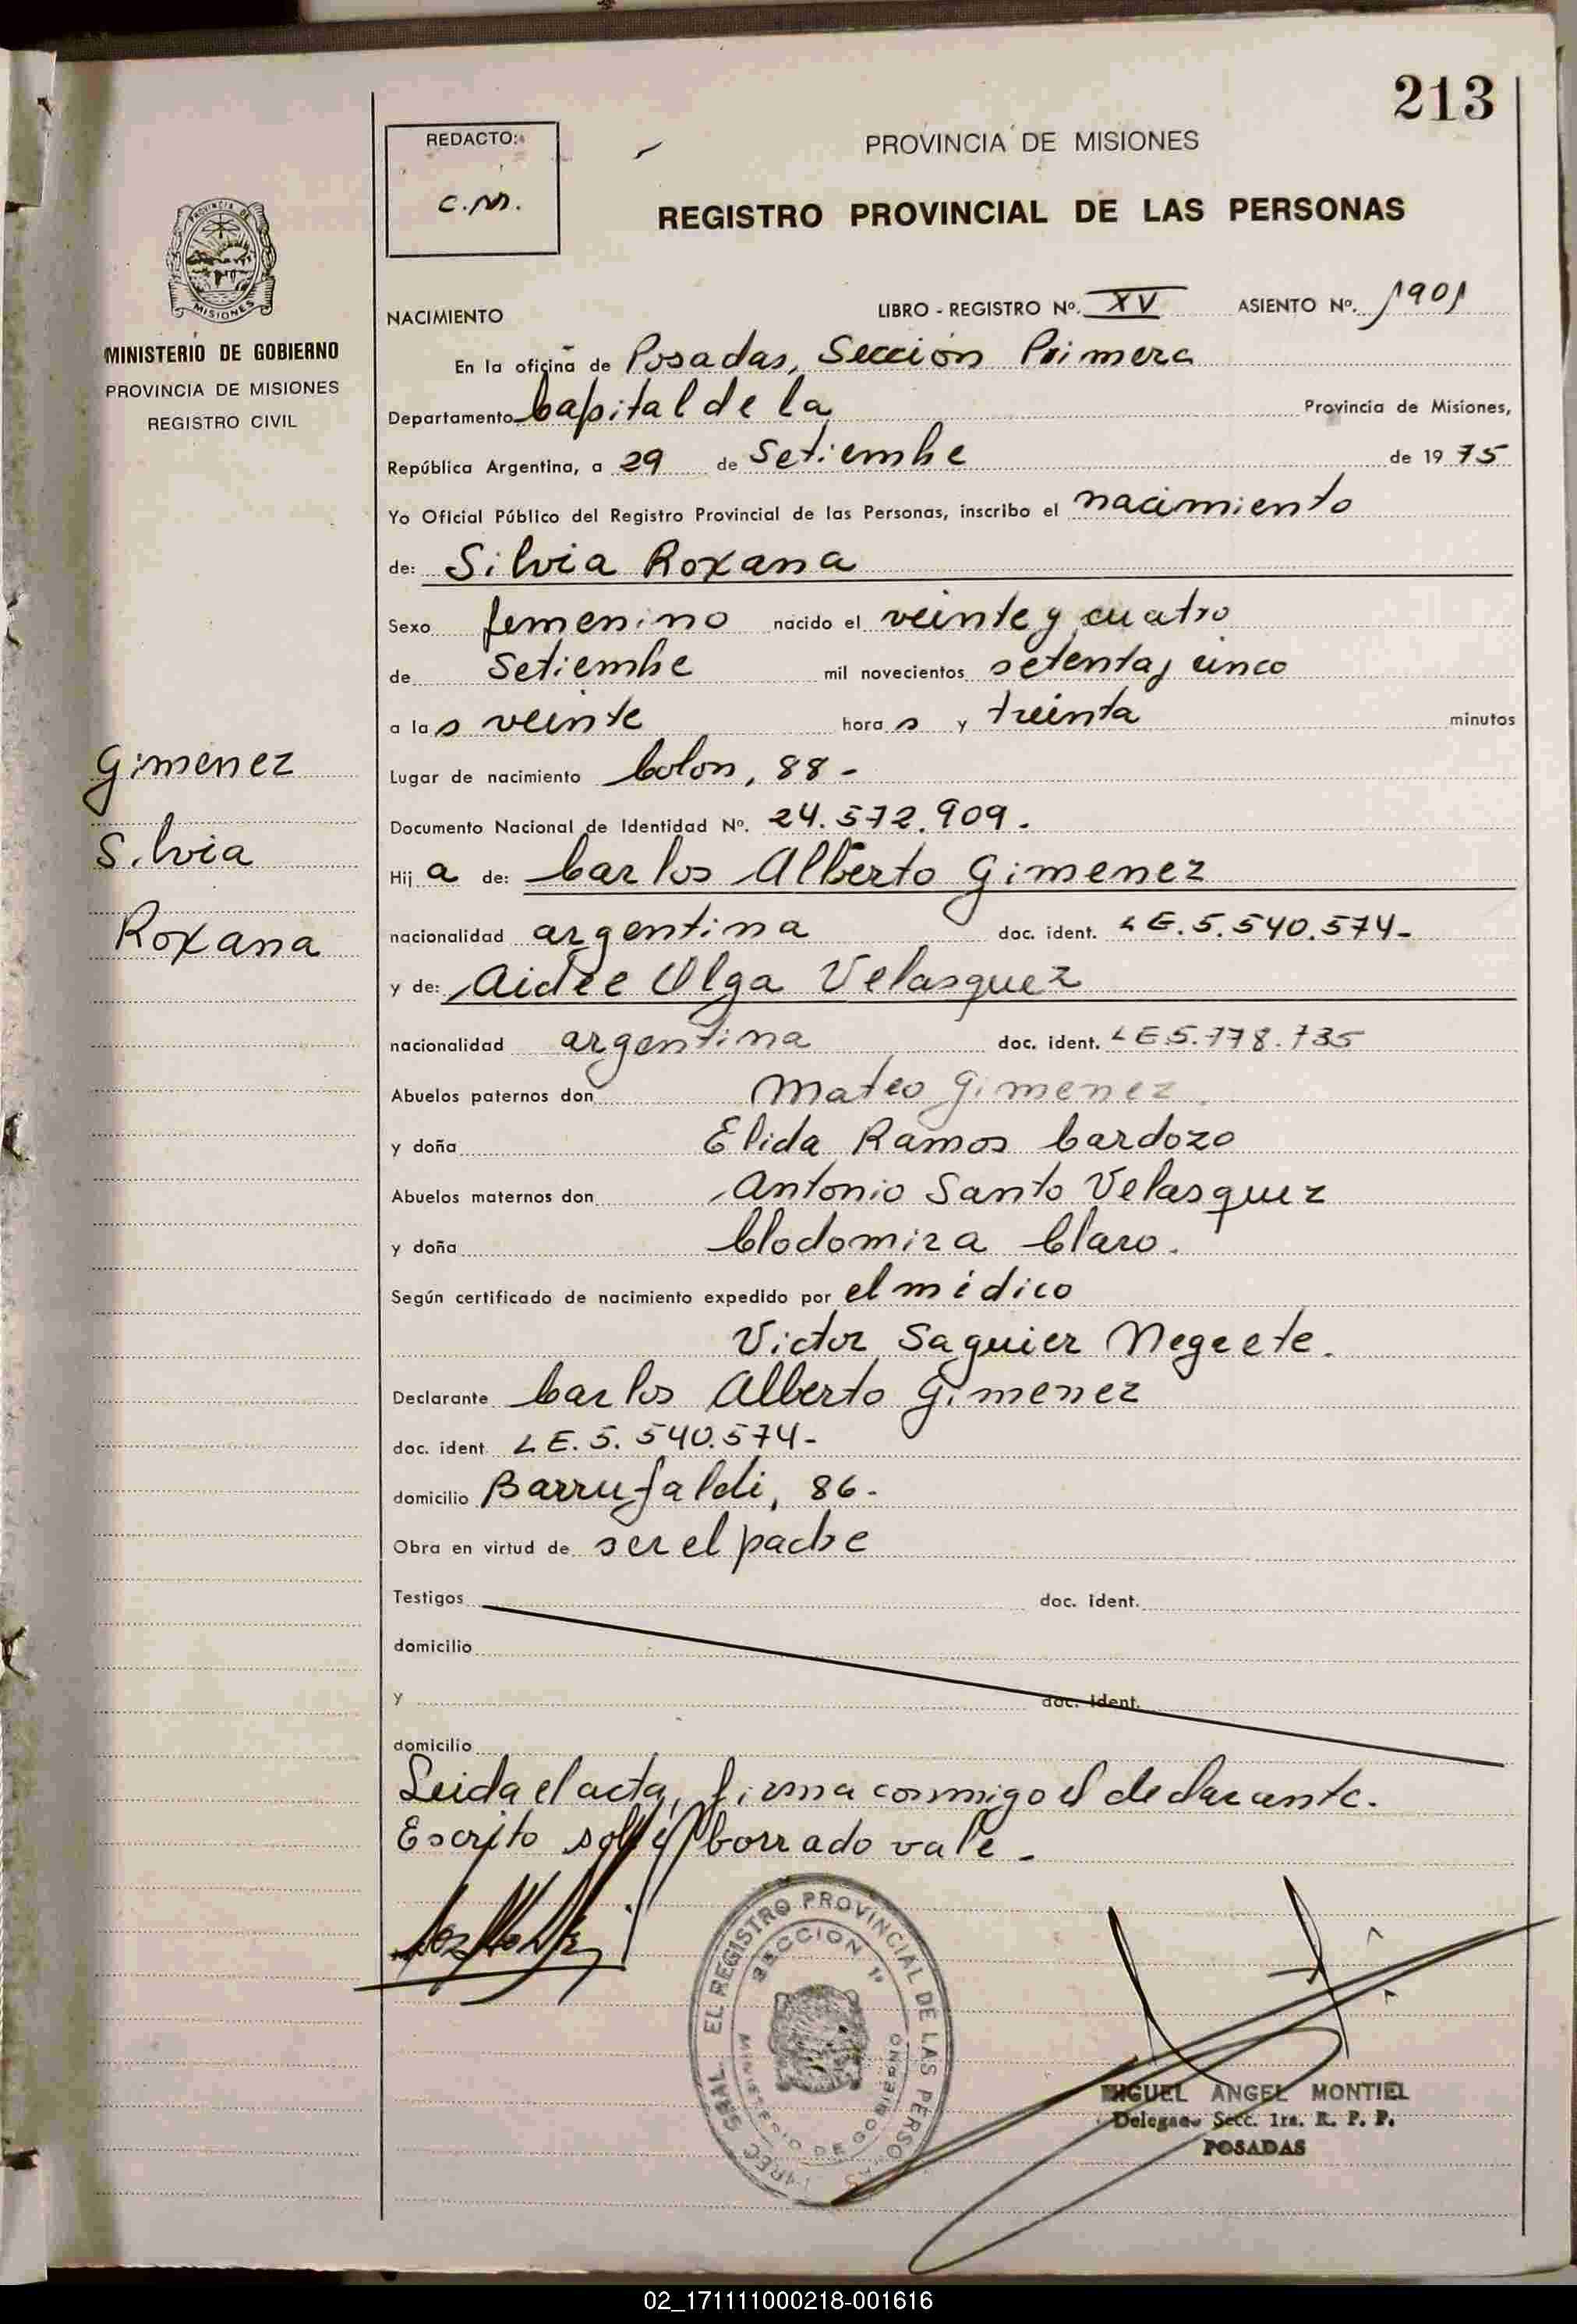 213
REDACTO:
C.M.
PROVINCIA DE MISIONES
REGISTRO PROVINCIAL DE LAS PERSONAS
PROVINCIA DE
MISIONES
MINISTERIO DE GOBIERNO
PROVINCIA DE MISIONES
REGISTRO CIVIL
NACIMIENTO LIBRO - REGISTRO Nº. XV ASIENTO Nº. 1901
En la oficina de Posadas, Sección Primera
Departamento Capital de la Provincia de Misiones,
República Argentina, a 29 de Setiembre de 1975
Yo Oficial Público del Registro Provincial de las Personas, inscribo el nacimiento
de: Silvia Roxana
Sexo femenino nacido el veinte y cuatro
de Setiembre mil novecientos setenta y cinco
a las veinte horas y treinta minutos
Gimenez
Silvia
Roxana
Lugar de nacimiento Colon, 88 -
Documento Nacional de Identidad Nº. 24.572.909.
Hija de: Carlos Alberto Gimenez
nacionalidad argentina doc. ident. LE. 5.540.574-
y de: Aidée Olga Velasquez
nacionalidad argentina doc. ident. LE 5.778.735
Abuelos paternos don Mateo Gimenez.
y doña Elida Ramos Cardozo
Abuelos maternos don Antonio Santo Velasquez
y doña Clodomira Claro.
Según certificado de nacimiento expedido por el médico
Victor Saguier Negrete.
Declarante Carlos Alberto Gimenez
doc. ident. LE. 5. 540.574-
domicilio Barrufaldi, 86-
Obra en virtud de ser el padre
Testigos doc. ident.
domicilio
y doc. ident.
domicilio
Leida el acta, firma conmigo el declarante.
Escrito sobre borrado vale -
EL REGISTRO PROVINCIAL DE LAS PERSONAS
SECCION 1ª
MINISTERIO DE GOBIERNO
MIGUEL ANGEL MONTIEL
Delegado Secc. 1ra. R. P. P.
POSADAS
02_171111000218-001616